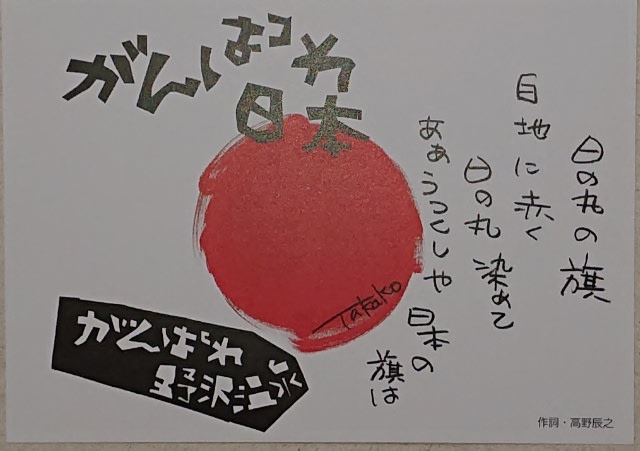 がんばれ
日本
日の丸の旗
白地に赤く
日の丸染めて
ああうつくしや
日本の
旗は
Takako
がんばれ
野沢温泉
作詞・高野辰之